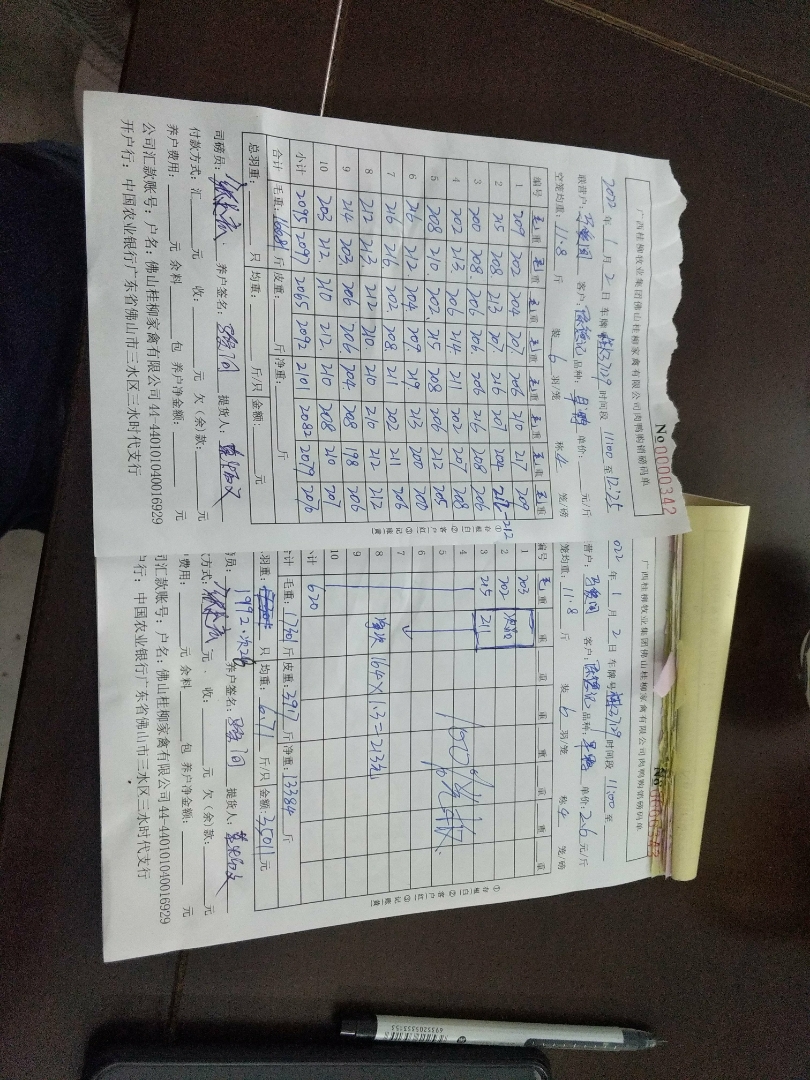 广西桂柳牧业集团佛山桂柳家禽有限公司肉鸭购销磅码单
No 0000342
2022 年 1 月 2 日 车牌 时间段 11:00 至 12:25
联营户: 客户: 品种: 单价: 元/斤
空笼均重: 11.8 斤 装 6 羽/笼 称 4 笼/磅
编号 毛重 毛重 毛重 毛重 毛重 毛重 毛重 毛重
1 209 202 204 207 206 210 217 209
2 215 208 213 207 216 207 204 212
3 200 208 206 206 206 216 208 206
4 202 213 206 214 211 202 207 208
5 208 210 202 215 208 206 212 205
6 216 212 204 209 219 213 200 200
7 216 216 202 208 211 202 211 206
8 212 213 212 210 210 210 212 212
9 214 203 206 206 204 208 198 206
10 203 212 210 212 210 208 210 207
小计 2095 2097 2065 2092 2101 2082 2079 2070
合计 毛重: 16681 斤 皮重: 斤 净重: 斤
总羽重: 只 均重: 斤/只 金额: 元
司磅员: 养户签名: 提货人:
付款方式: 汇 元 收: 元 欠(余)款: 元
养户费用: 元 余料 包 养户净金额: 元
公司汇款账号: 户名: 佛山桂柳家禽有限公司 44-440101040016929
开户行: 中国农业银行广东省佛山市三水区三水时代支行
①存根白 ②客户红 ③记账黄
广西桂柳牧业集团佛山桂柳家禽有限公司肉鸭购销磅码单
022 年 1 月 2 日 车牌号 时间段 11:00 至
营户: 客户: 品种: 单价: 2.6 元/斤
笼均重: 11.8 斤 装 6 羽/笼 称 4 笼/磅
编号 毛重 重 重 重 重 重 重 重
1 203 次品
2 202 211
3 215
4
5
6
7
8 164×1.3=213元
9
10
小计 620
计 毛重: 17301 斤 皮重: 3917 斤 净重: 13384 斤
羽重: 1992 只 均重: 6.71 斤/只 金额: 35011 元
员: 养户签名: 提货人:
方式: 元 收: 元 欠(余)款: 元
费用: 元 余料 包 养户净金额: 元
司汇款账号: 户名: 佛山桂柳家禽有限公司 44-440101040016929
行: 中国农业银行广东省佛山市三水区三水时代支行
①存根白 ②客户红 ③记账黄
6935205355153